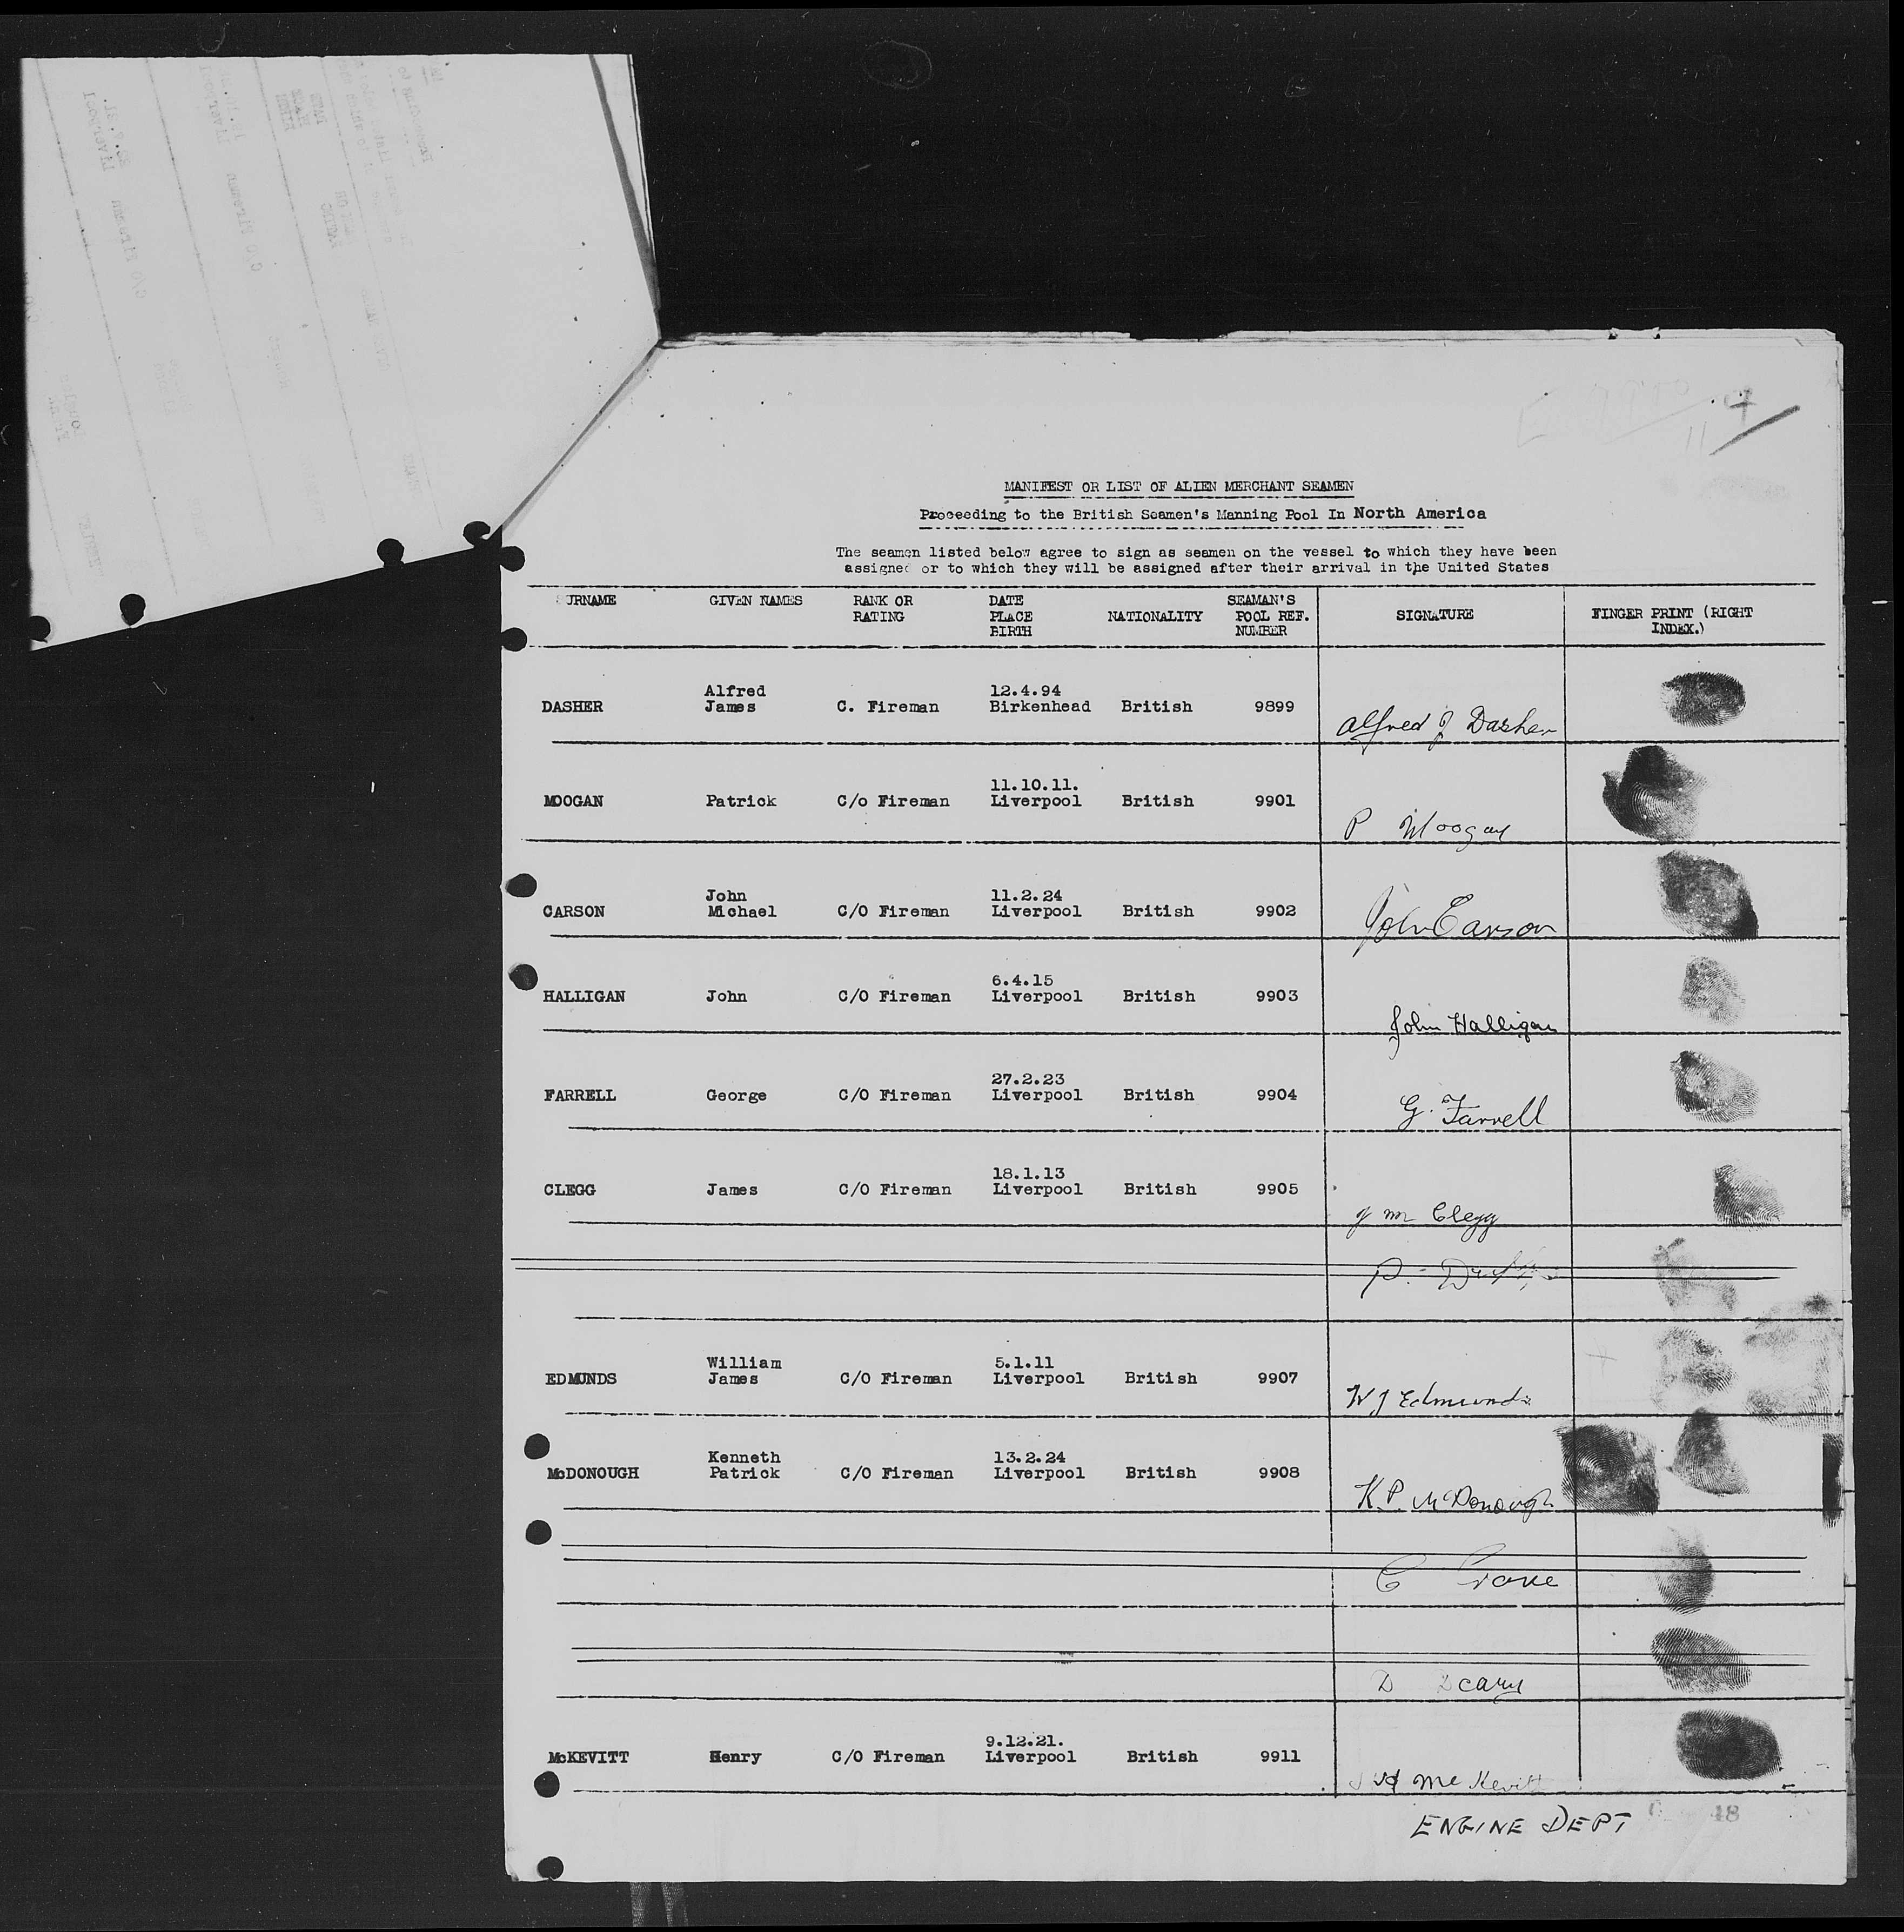 MANIFEST OR LIST OF ALIEN MERCHANT SEAMEN
Proceeding to the British Seamen's Manning Pool In North America
The seamen listed below agree to sign as seamen on the vessel to which they have been
assigned or to which they will be assigned after their arrival in the United States
SURNAME GIVEN NAMES RANK OR RATING DATE PLACE BIRTH NATIONALITY SEAMAN'S POOL REF. NUMBER SIGNATURE FINGER PRINT (RIGHT INDEX.)
Alfred 12.4.94
DASHER James C. Fireman Birkenhead British 9899 Alfred J Dasher
11.10.11.
MOOGAN Patrick C/o Fireman Liverpool British 9901 P Moogan
John 11.2.24
CARSON Michael C/O Fireman Liverpool British 9902 John Carson
6.4.15
HALLIGAN John C/O Fireman Liverpool British 9903 John Halligan
27.2.23
FARRELL George C/O Fireman Liverpool British 9904 G. Farrell
18.1.13
CLEGG James C/O Fireman Liverpool British 9905 J m Clegg
P.
William 5.1.11
EDMUNDS James C/O Fireman Liverpool British 9907 W J Edmunds
Kenneth 13.2.24
McDONOUGH Patrick C/O Fireman Liverpool British 9908 K.P. McDonough
C
D
9.12.21.
McKEVITT Henry C/O Fireman Liverpool British 9911 McKevitt
ENGINE DEPT 48